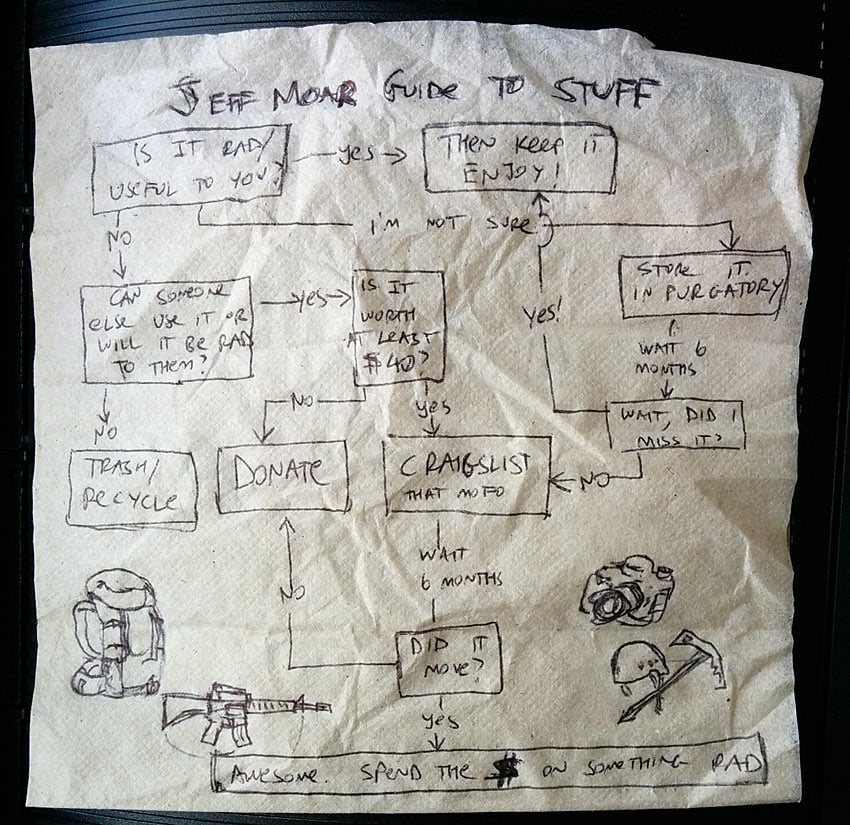 JEFF MOAR GUIDE TO STUFF
IS IT RAD/
USEFUL TO YOU?
yes
THEN KEEP IT
ENJOY!
NO
I'M NOT SURE
CAN SOMEONE
ELSE USE IT OR
WILL IT BE RAD
TO THEM?
yes
IS IT
WORTH
AT LEAST
$40?
yes!
STORE IT
IN PURGATORY
WAIT 6
MONTHS
NO
NO
yes
WAIT, DID I
MISS IT?
TRASH/
RECYCLE
DONATE
CRAIGSLIST
THAT MOFO
NO
WAIT
6 MONTHS
NO
DID IT
MOVE?
yes
AWESOME. SPEND THE $ ON SOMETHING RAD